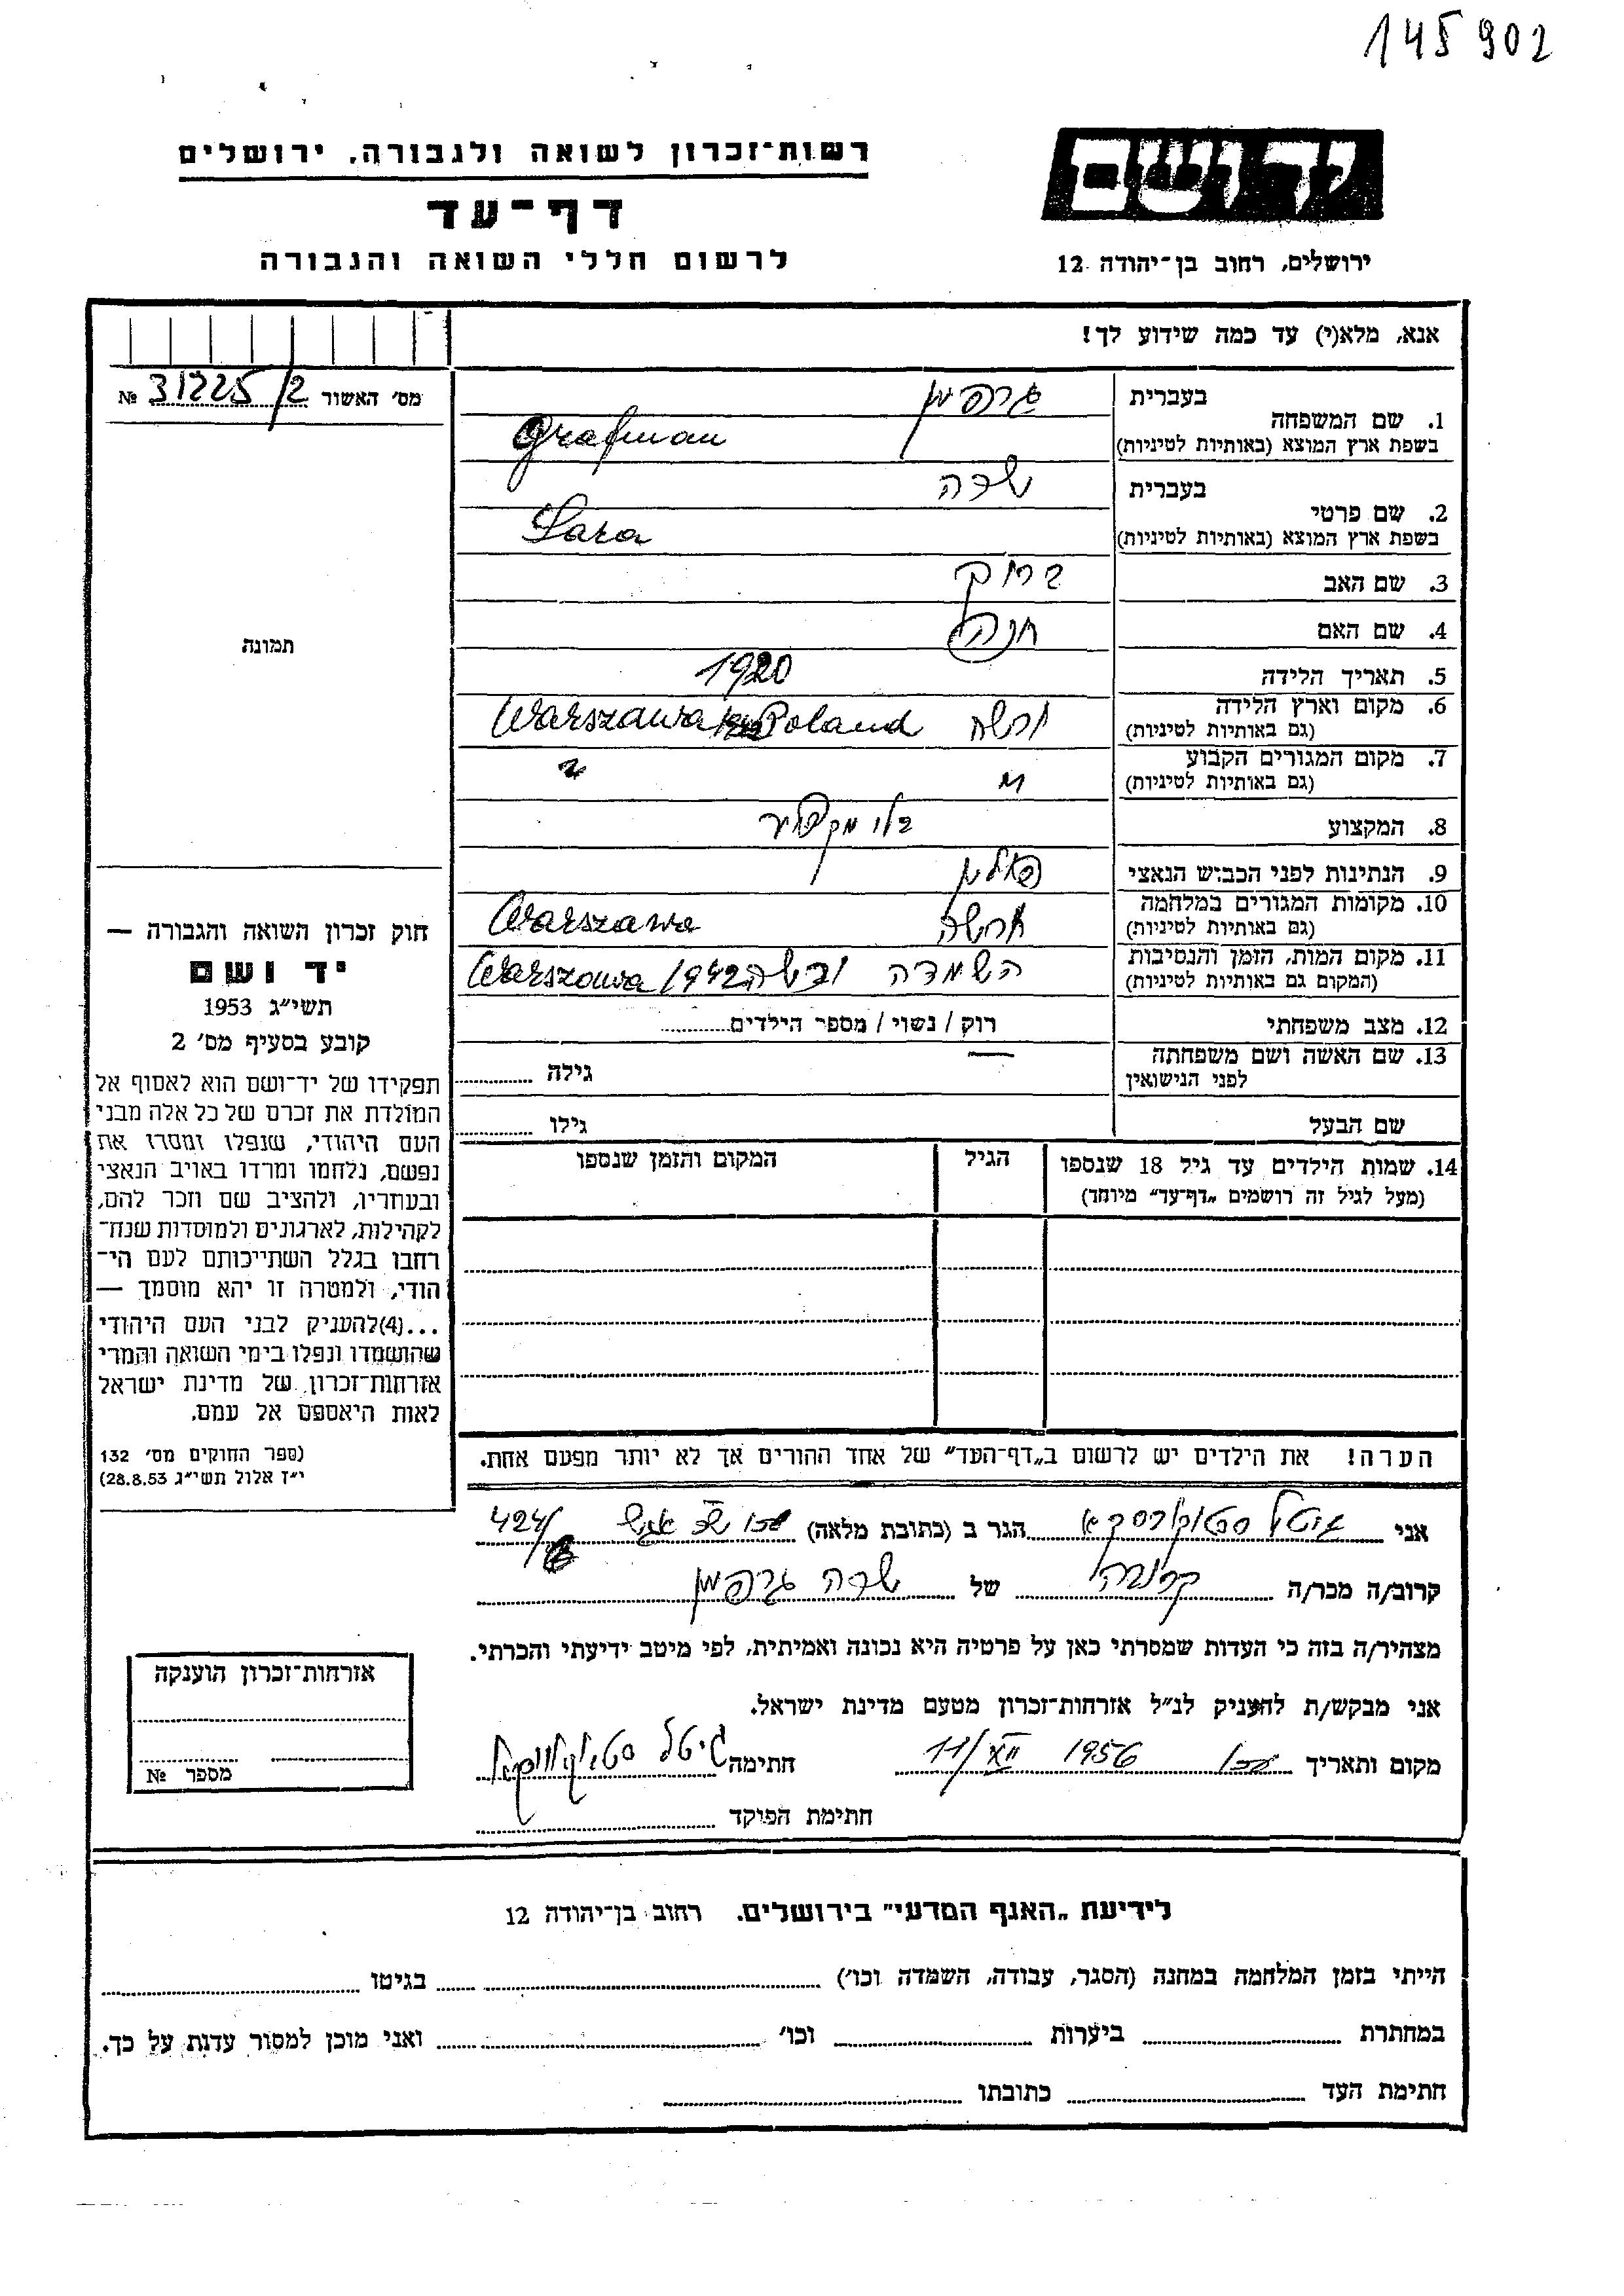 145902
רשות־זכרון לשואה ולגבורה, ירושלים
דף־עד
לרשום חללי השואה והגבורה
יד ושם
ירושלים, רחוב בן־יהודה 12
אנא, מלא(י) עד כמה שידוע לך!
מס׳ האשור № 31225/2
1. שם המשפחה
בעברית גרפמן
בשפת ארץ המוצא (באותיות לטיניות) Grafman
2. שם פרטי
בעברית שרה
בשפת ארץ המוצא (באותיות לטיניות) Sara
3. שם האב ברוך
4. שם האם חנה
5. תאריך הלידה 1920
6. מקום וארץ הלידה
(גם באותיות לטיניות) ורשה Warszawa Poland
7. מקום המגורים הקבוע
(גם באותיות לטיניות) " "
8. המקצוע בלי מקצוע
9. הנתינות לפני הכבוש הנאצי פולין
10. מקומות המגורים במלחמה
(גם באותיות לטיניות) ורשה Warszawa
11. מקום המות, הזמן והנסיבות
(המקום גם באותיות לטיניות) השמדה ורשה 1942 Warszawa
12. מצב משפחתי רוק / נשוי / מספר הילדים
13. שם האשה ושם משפחתה
לפני הנישואין — גילה
שם הבעל גילו
14. שמות הילדים עד גיל 18 שנספו
(מעל לגיל זה רושמים „דף־עד" מיוחד)
הגיל
המקום והזמן שנספו
תמונה
חוק זכרון השואה והגבורה —
יד ושם
תשי״ג 1953
קובע בסעיף מס׳ 2
תפקידו של יד־ושם הוא לאסוף אל
המולדת את זכרם של כל אלה מבני
העם היהודי, שנפלו ומסרו את
נפשם, נלחמו ומרדו באויב הנאצי
ובעוזריו, ולהציב שם וזכר להם,
לקהילות, לארגונים ולמוסדות שנח־
רבו בגלל השתייכותם לעם הי־
הודי, ולמטרה זו יהא מוסמך —
...(4)להעניק לבני העם היהודי
שהושמדו ונפלו בימי השואה והמרי
אזרחות־זכרון של מדינת ישראל
לאות היאספם אל עמם.
(ספר החוקים מס׳ 132
י״ז אלול תשי״ג 28.8.53)
הערה! את הילדים יש לרשום ב„דף־העד" של אחד ההורים אך לא יותר מפעם אחת.
אני גיטל הגר ב (כתובת מלאה) 424/
קרוב/ה מכר/ה קרובה של שרה גרפמן
מצהיר/ה בזה כי העדות שמסרתי כאן על פרטיה היא נכונה ואמיתית, לפי מיטב ידיעתי והכרתי.
אני מבקש/ת להעניק לנ״ל אזרחות־זכרון מטעם מדינת ישראל.
מקום ותאריך 11/XII 1956 חתימה גיטל
חתימת הפוקד
אזרחות־זכרון הוענקה
מספר №
לידיעת „האגף המדעי" בירושלים, רחוב בן־יהודה 12
הייתי בזמן המלחמה במחנה (הסגר, עבודה, השמדה וכו׳) בגיטו
במחתרת ביערות וכו׳ ואני מוכן למסור עדות על כך.
חתימת העד כתובתו